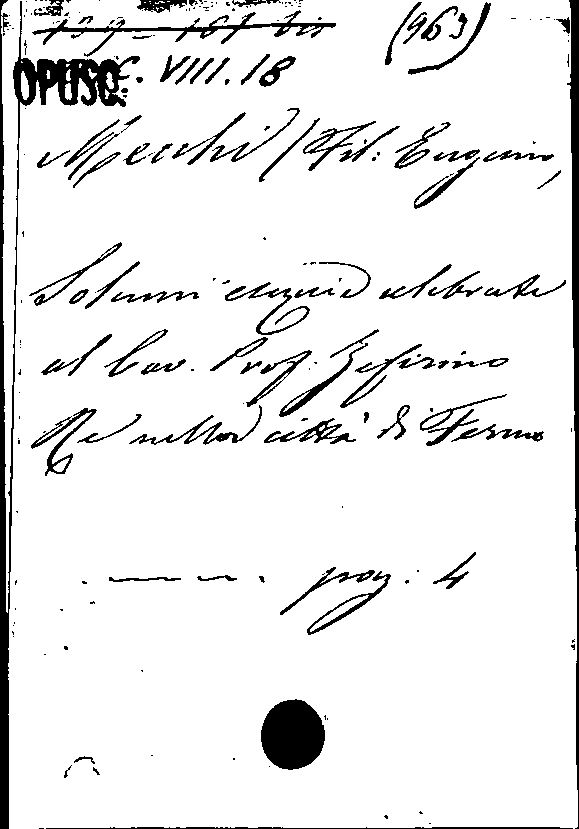 159 - 161 bis (963)
OPUSC. VIII. 18
Mecchi (Fil: Eugenio,
Solenni esequie celebrate
al Cav. Prof. Zefirino
Re nella città di Fermo
pag: 4